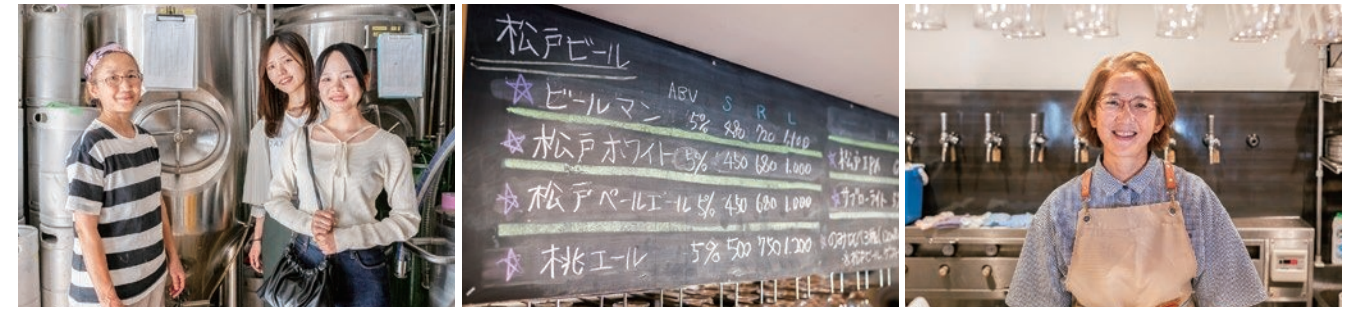 松戸ビール
ABV S R L
☆ ビールマン 5% 480 720 1,100
☆ 松戸ホワイト 5% 450 680 1.000
☆ 松戸ペールエール 5% 450 680 1.000
☆ 桃エール 5% 500 750 1.200
☆ 松戸IPA
☆ サブローライト